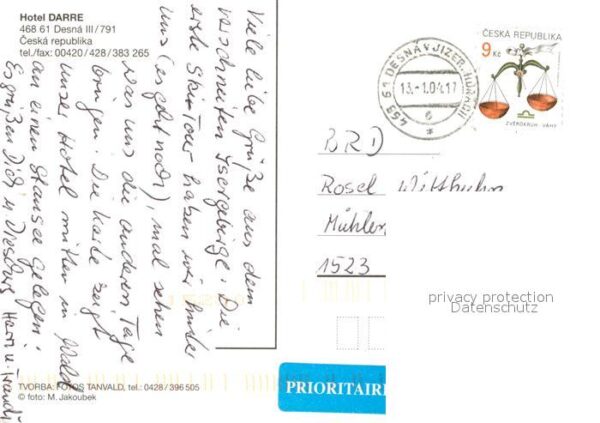 Hotel DARRE
468 61 Desná III/791
Česká republika
tel./fax: 00420/428/383 265
Viele liebe Grüße aus dem
verschneiten Isergebirge. Die
erste Skitour haben wir hinter
uns (es geht noch), mal sehen
was uns die anderen Tage
bringen. Die Karte zeigt
unser Hotel mitten im Wald
an einem Stausee gelegen.
Es grüßen Dich u.
TVORBA: FOTOS TANVALD, tel.: 0428/396 505
© foto: M. Jakoubek
468 61 DESNÁ V JIZER. HORÁCH
13.-1.04.17
6
ČESKÁ REPUBLIKA
9 Kč
ZVĚROKRUH - VÁHY
BRD
Rosel Witthuhn
Mühlen
1523
privacy protection
Datenschutz
PRIORITAIRE